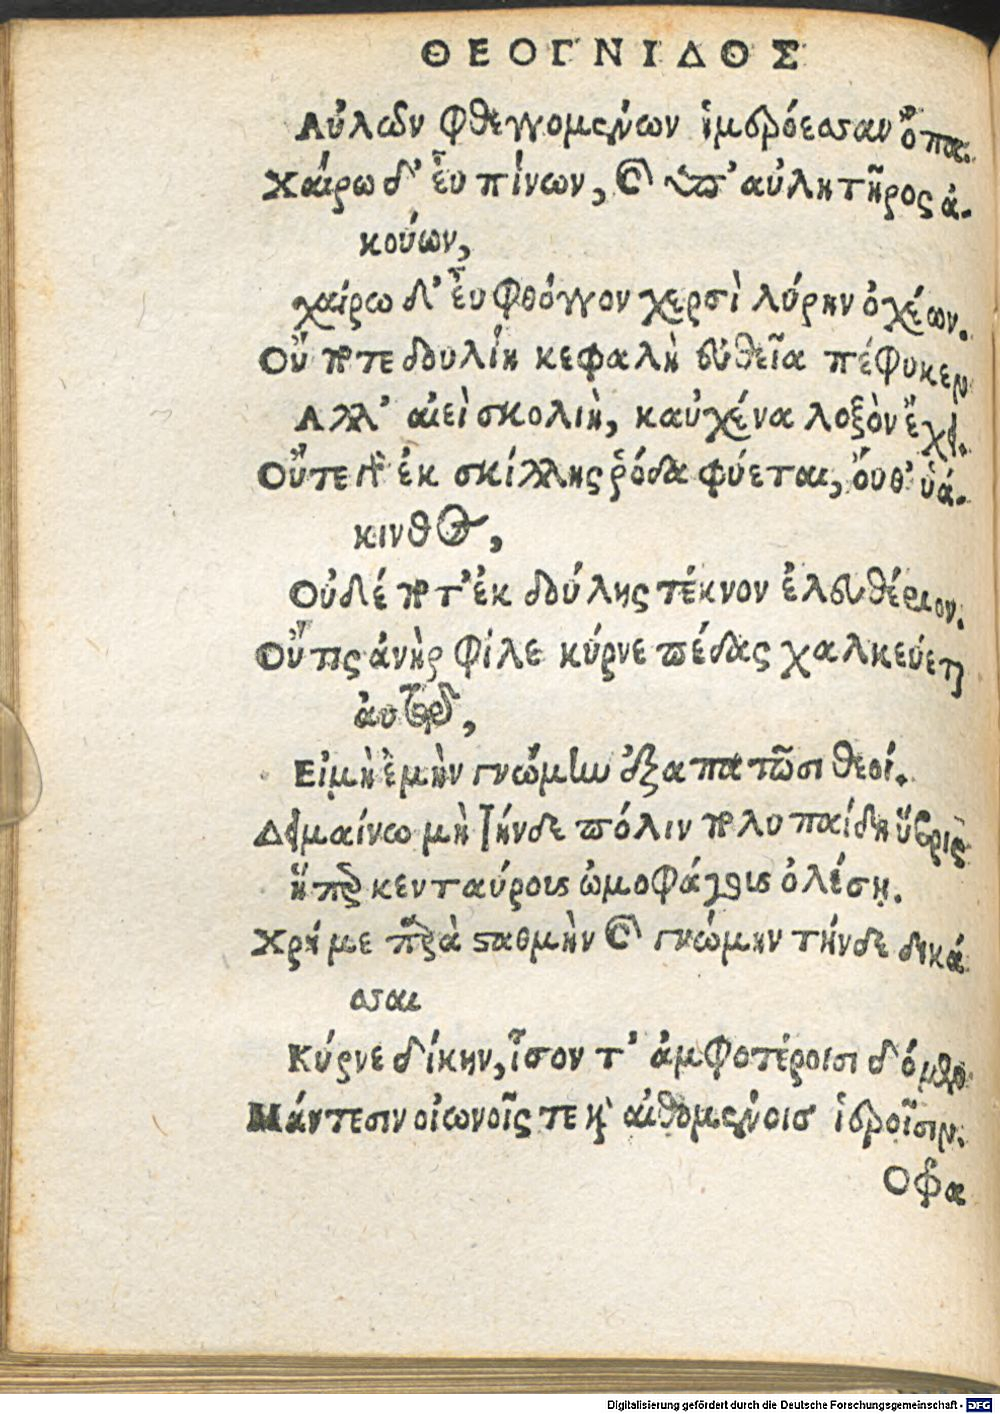 ΘΕΟΓΝΙΔΟΣ
Αὐλῶν φθεγγομένων ἱμερόεσσαν ὄπα.
Χαίρω δ' εὖ πίνων, καὶ ὑπ' αὐλητῆρος ἀ-
κούων,
χαίρω δ' εὔφθογγον χερσὶ λύρην ὀχέων.
Οὔ ποτε δουλίη κεφαλὴ εὐθεῖα πέφυκεν
Αλλ' αἰεὶ σκολιὴ, καὐχένα λοξὸν ἔχει.
Οὔτε γὰρ ἐκ σκίλλης ῥόδα φύεται, ὄυθ' ὑά-
κινθος,
Οὐδέ ποτ' ἐκ δούλης τέκνον ἐλευθέριον.
Οὔτις ἀνὴρ φίλε κύρνε πέδας χαλκεύεται
ἀυτῷ,
Εἰ μὴ ἐμὴν γνώμην ἐξαπατῶσι θεοί.
Δειμαίνω μὴ τήνδε πόλιν πολυπαίδη ὕβρις
ἥπερ κενταύρους ὠμοφάγους ὀλέση.
Χρή με παρὰ σταθμὴν καὶ γνώμην τήνδε δικά
σσαι
Κύρνε δίκην, ἶσον τ' ἀμφοτέροισι δόμεν
Μάντεσιν οἰωνοῖς τε καὶ αἰθομένοις ἱεροῖσιν.
Οφρα
Digitalisierung gefördert durch die Deutsche Forschungsgemeinschaft - DFG